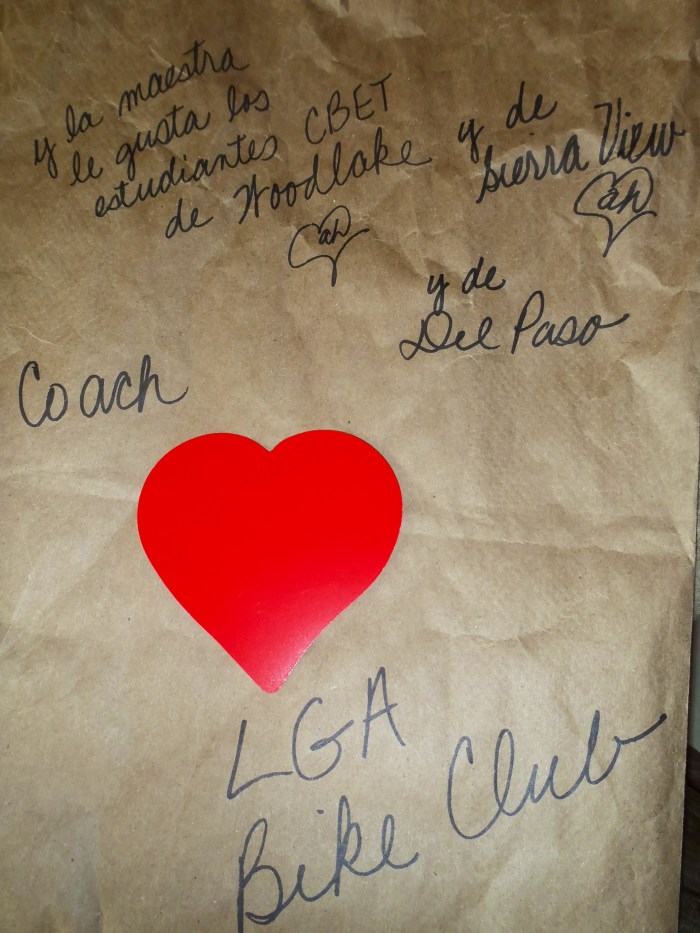 y la maestra
le gusta los
estudiantes CBET
de Woodlake
ah
y de
Sierra View
ah
y de
Del Paso
Coach
LGA
Bike Club